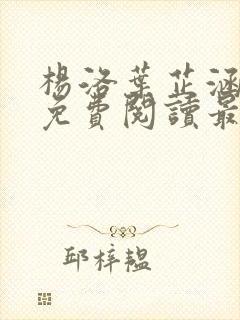 楊洛葉芷涵
免費閱讀最
邱梓韞